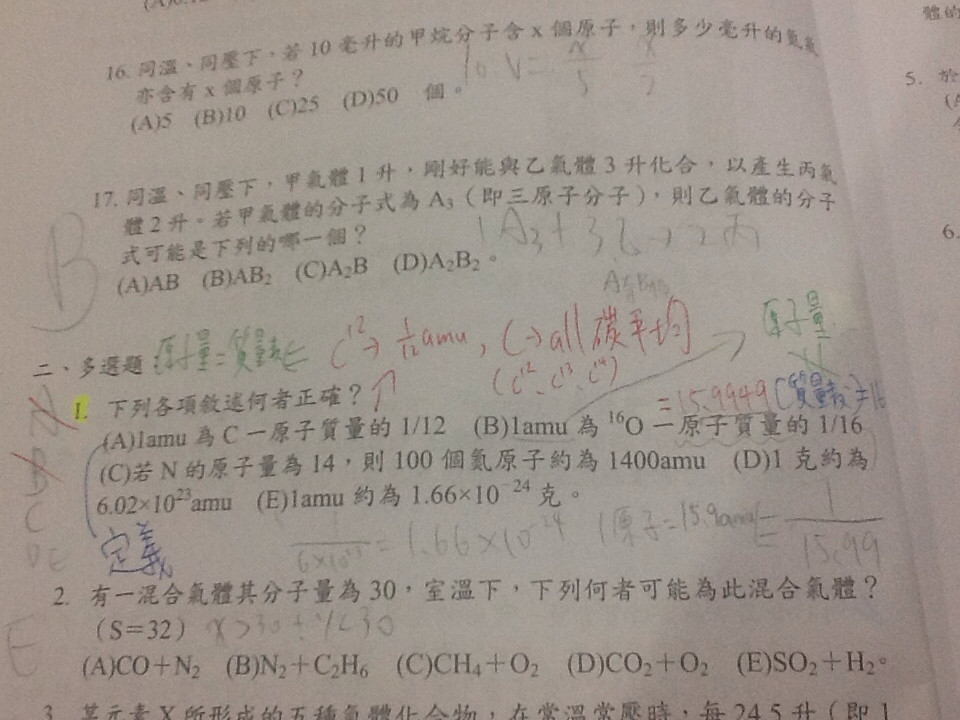 16. 同溫、同壓下，若 10 毫升的甲烷分子含 x 個原子，則多少毫升的氦氣
亦含有 x 個原子？
10. V = x/5 x/2
(A)5 (B)10 (C)25 (D)50 個。
17. 同溫、同壓下，甲氣體 1 升，剛好能與乙氣體 3 升化合，以產生丙氣
體 2 升。若甲氣體的分子式為 A₃（即三原子分子），則乙氣體的分子
式可能是下列的哪一個？
1A₃+3乙→2丙
(A)AB (B)AB₂ (C)A₂B (D)A₂B₂。
B
二、多選題
原子量=質量
C¹²→1/12 amu, C→all 碳平均
(C¹²、C¹³、C¹⁴)
原子量
=15.9949 (質量數)=16
1. 下列各項敘述何者正確？
(A)1amu 為 C 一原子質量的 1/12 (B)1amu 為 ¹⁶O 一原子質量的 1/16
(C)若 N 的原子量為 14，則 100 個氮原子約為 1400amu (D)1 克約為
6.02×10²³amu (E)1amu 約為 1.66×10⁻²⁴ 克。
B
C
DE
定義
1/6×10²³ = 1.66×10⁻²⁴
1原子=15.9amu
1/15.99
2. 有一混合氣體其分子量為 30，室溫下，下列何者可能為此混合氣體？
（S=32）
x>30 y<30
E
(A)CO+N₂ (B)N₂+C₂H₆ (C)CH₄+O₂ (D)CO₂+O₂ (E)SO₂+H₂。
3. 某元素 X 所形成的五種氣體化合物，在常溫常壓時，每 24.5 升（即 1
體的
5. 於
(A
6.